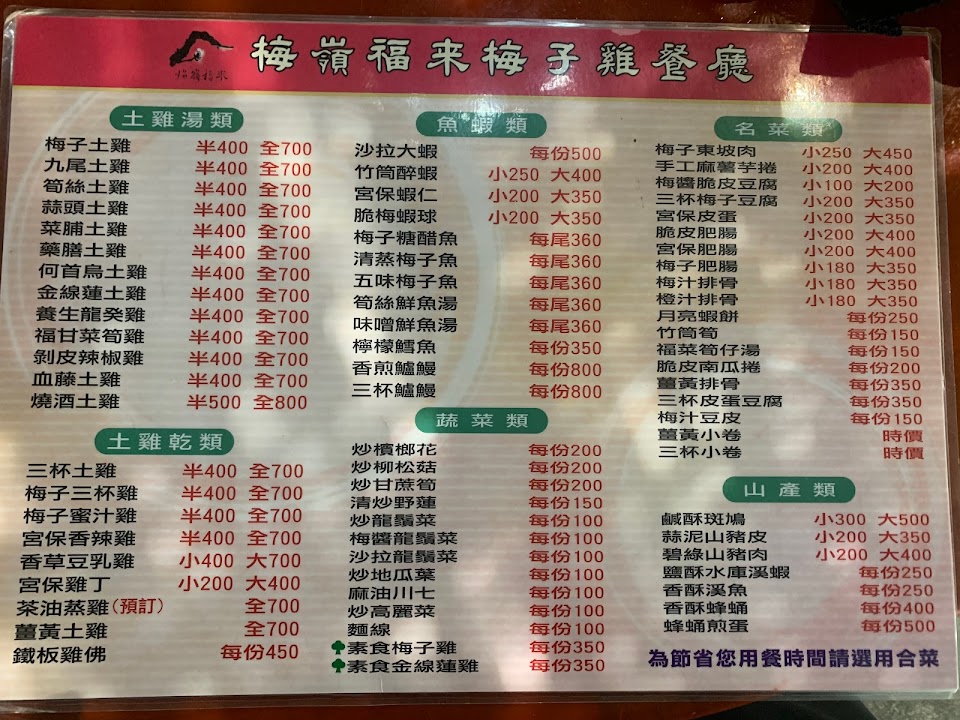 梅嶺福来梅子雞餐廳
梅嶺福來
土雞湯類
梅子土雞 半400 全700
九尾土雞 半400 全700
筍絲土雞 半400 全700
蒜頭土雞 半400 全700
菜脯土雞 半400 全700
藥膳土雞 半400 全700
何首烏土雞 半400 全700
金線蓮土雞 半400 全700
養生龍葵雞 半400 全700
福甘菜筍雞 半400 全700
剝皮辣椒雞 半400 全700
血藤土雞 半400 全700
燒酒土雞 半500 全800
土雞乾類
三杯土雞 半400 全700
梅子三杯雞 半400 全700
梅子蜜汁雞 半400 全700
宮保香辣雞 半400 全700
香草豆乳雞 小400 大700
宮保雞丁 小200 大400
茶油蒸雞(預訂) 全700
薑黃土雞 全700
鐵板雞佛 每份450
魚蝦類
沙拉大蝦 每份500
竹筒醉蝦 小250 大400
宮保蝦仁 小200 大350
脆梅蝦球 小200 大350
梅子糖醋魚 每尾360
清蒸梅子魚 每尾360
五味梅子魚 每尾360
筍絲鮮魚湯 每尾360
味噌鮮魚湯 每尾360
檸檬鱈魚 每份350
香煎鱸鰻 每份800
三杯鱸鰻 每份800
蔬菜類
炒檳榔花 每份200
炒柳松菇 每份200
炒甘蔗筍 每份200
清炒野蓮 每份150
炒龍鬚菜 每份100
梅醬龍鬚菜 每份100
沙拉龍鬚菜 每份100
炒地瓜葉 每份100
麻油川七 每份100
炒高麗菜 每份100
麵線 每份100
素食梅子雞 每份350
素食金線蓮雞 每份350
名菜類
梅子東坡肉 小250 大450
手工麻薯芋捲 小200 大400
梅醬脆皮豆腐 小100 大200
三杯梅子豆腐 小200 大350
宮保皮蛋 小200 大350
脆皮肥腸 小200 大400
宮保肥腸 小200 大400
梅子肥腸 小180 大350
梅汁排骨 小180 大350
橙汁排骨 小180 大350
月亮蝦餅 每份250
竹筒筍 每份150
福菜筍仔湯 每份150
脆皮南瓜捲 每份200
薑黃排骨 每份350
三杯皮蛋豆腐 每份350
梅汁豆皮 每份150
薑黃小卷 時價
三杯小卷 時價
山產類
鹹酥斑鳩 小300 大500
蒜泥山豬皮 小200 大350
碧綠山豬肉 小200 大400
鹽酥水庫溪蝦 每份250
香酥溪魚 每份250
香酥蜂蛹 每份400
蜂蛹煎蛋 每份500
為節省您用餐時間請選用合菜